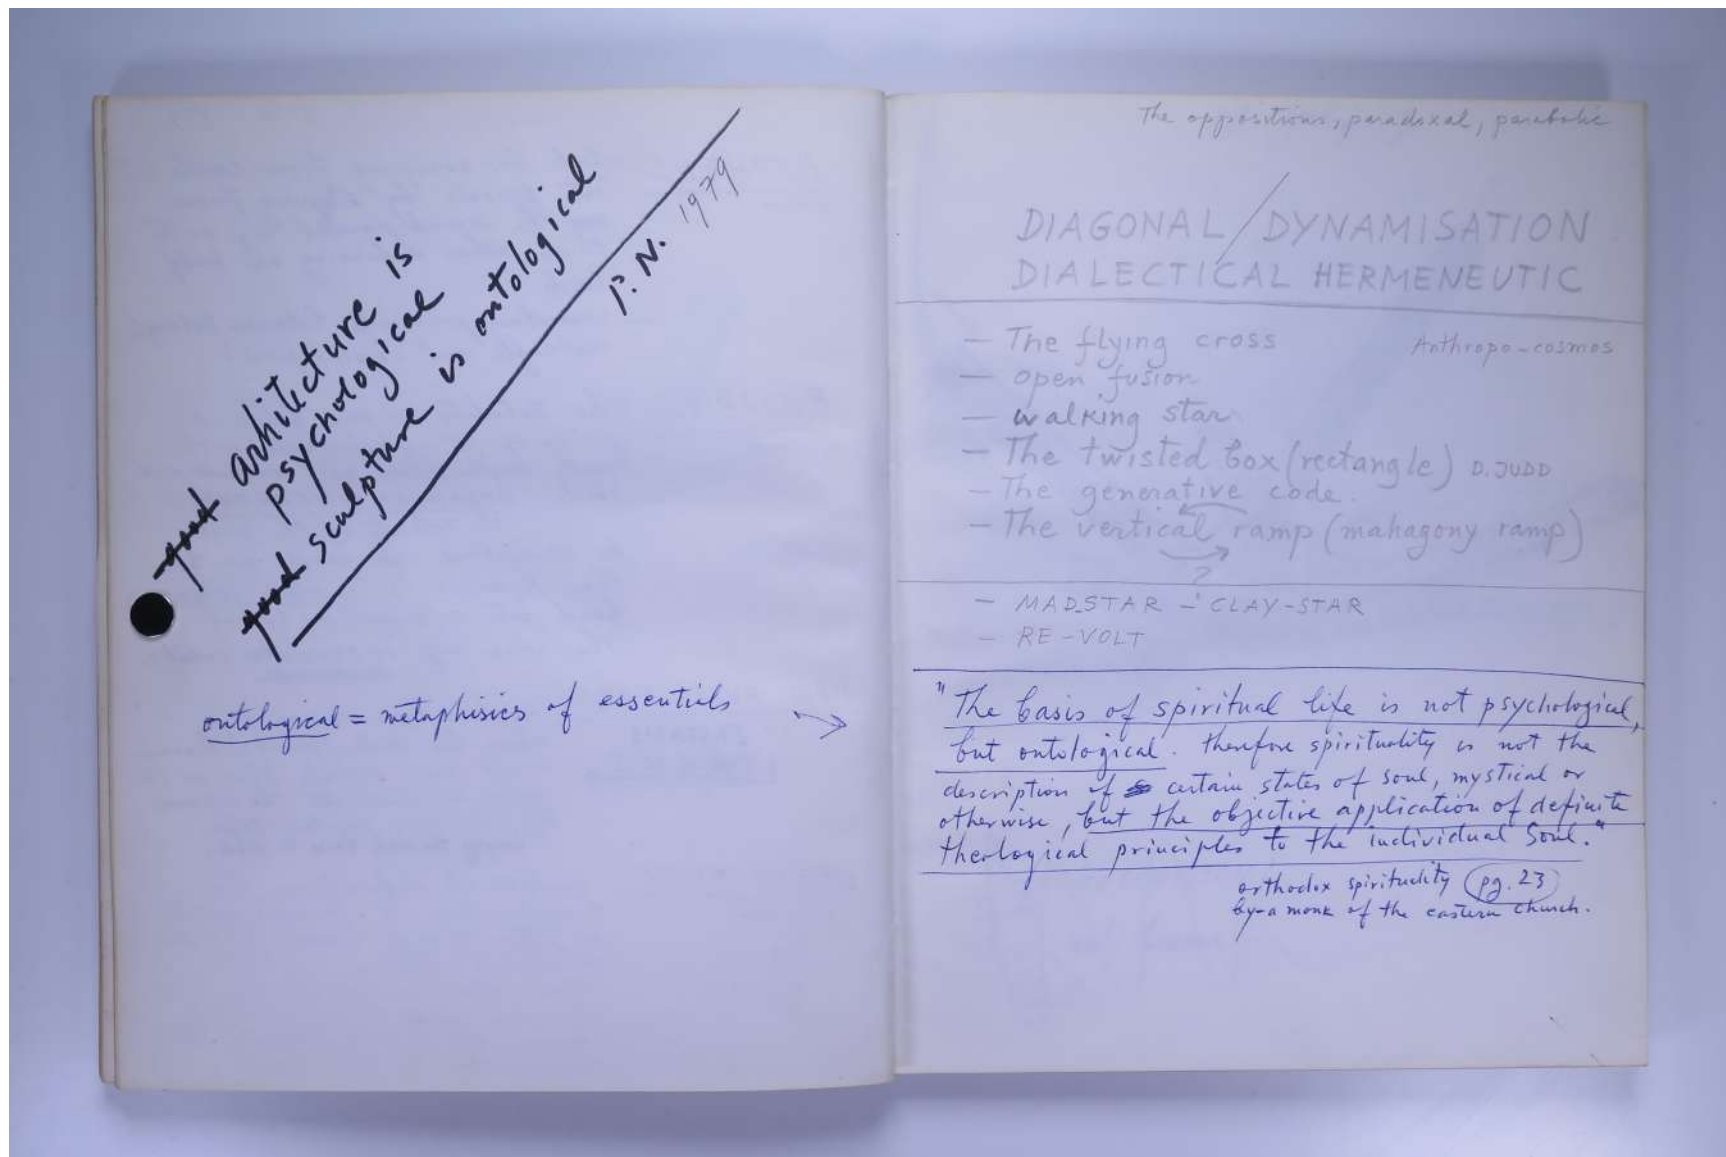 ~~good~~ architecture is
psychological
~~good~~ sculpture is ontological
P.N. 1979
ontological = metaphisics of essentials
The oppositions, paradoxal, parabolic
DIAGONAL / DYNAMISATION
DIALECTICAL HERMENEUTIC
— The flying cross Anthropo-cosmos
— open fusion
— walking star
— The twisted box (rectangle) D. JUDD
— The generative code.
— The vertical ramp (mahagony ramp)
?
— MAD-STAR – CLAY-STAR
— RE-VOLT
"The basis of spiritual life is not psychological,
but ontological. therefore spirituality is not the
description of certain states of soul, mystical or
otherwise, but the objective application of definite
theological principles to the individual Soul."
orthodox spirituality pg. 23
by a monk of the eastern church.